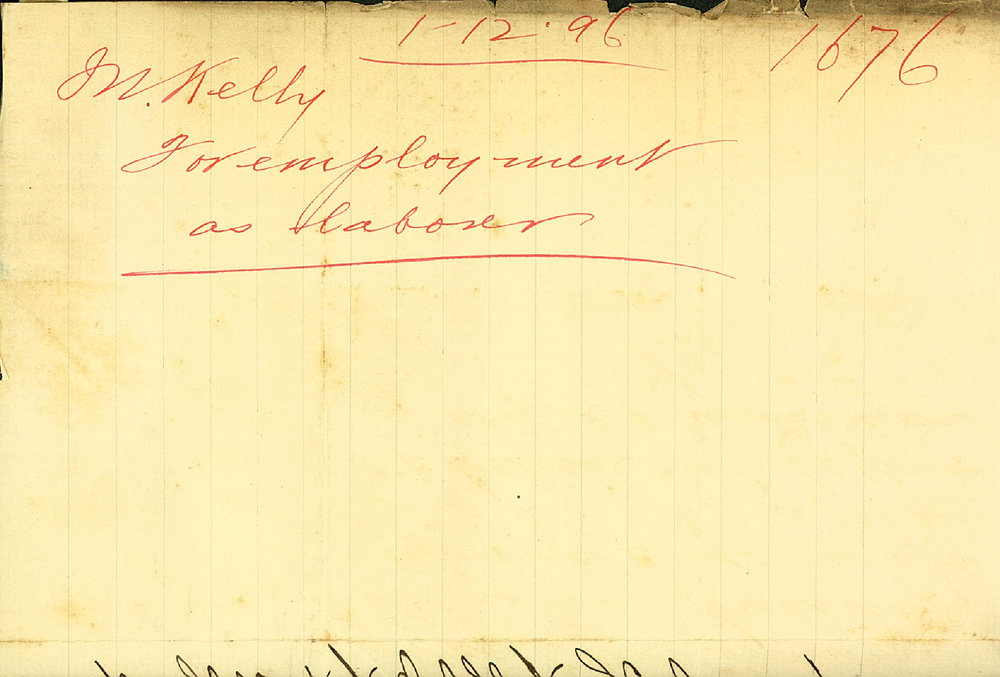 1-12.96
1676
M. Kelly
For employment
as laborer